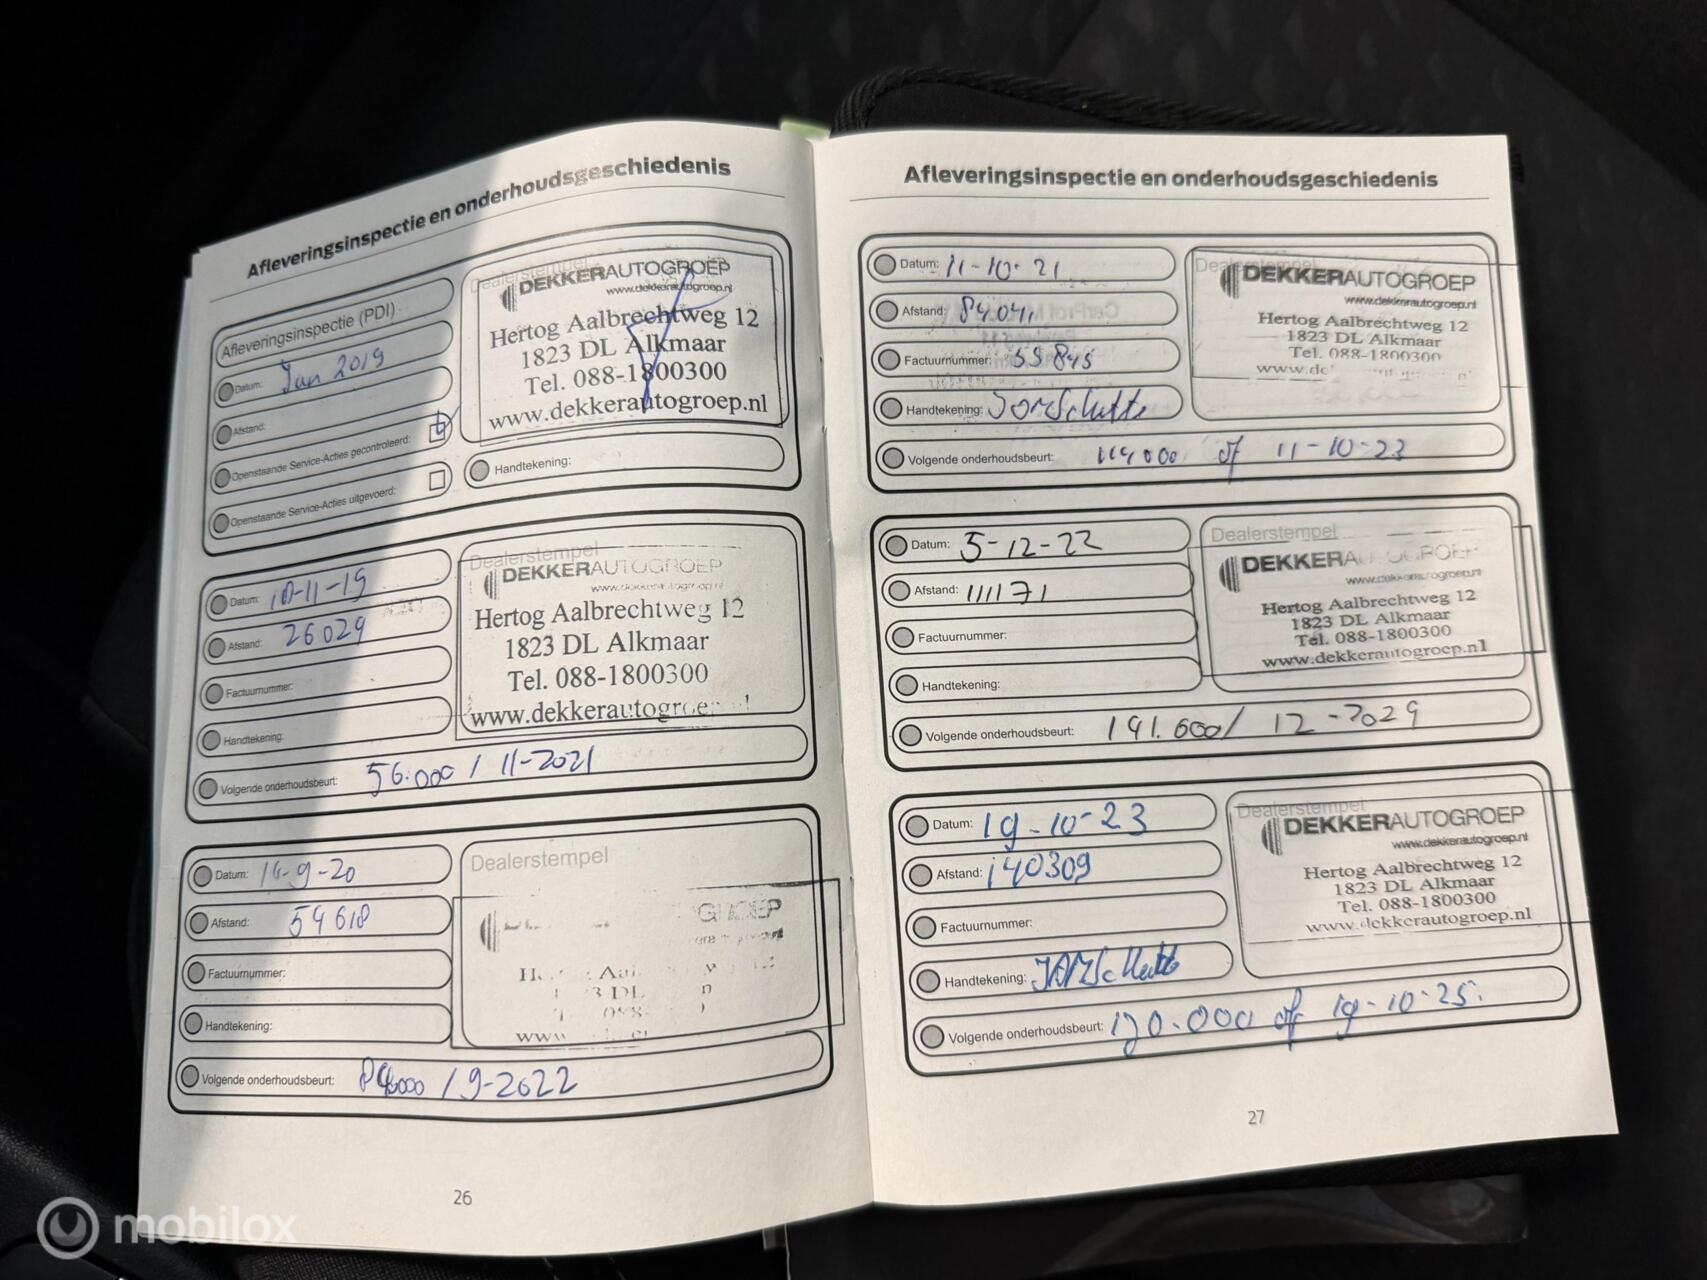 Afleveringsinspectie en onderhoudsgeschiedenis
Afleveringsinspectie (PDI)
Datum: Jan 2019
Afstand:
Openstaande Service-Acties gecontroleerd:
Openstaande Service-Acties uitgevoerd:
Dealerstempel
DEKKERAUTOGROEP
www.dekkerautogroep.nl
Hertog Aalbrechtweg 12
1823 DL Alkmaar
Tel. 088-1800300
www.dekkerautogroep.nl
Handtekening:
Datum: 18-11-19
Afstand: 26029
Factuurnummer:
Handtekening:
Volgende onderhoudsbeurt: 56.000 / 11-2021
Dealerstempel
DEKKERAUTOGROEP
www.dekkerautogroep.nl
Hertog Aalbrechtweg 12
1823 DL Alkmaar
Tel. 088-1800300
www.dekkerautogroep.nl
Datum: 14-9-20
Afstand: 54618
Factuurnummer:
Handtekening:
Volgende onderhoudsbeurt: 84000 / 9-2022
Dealerstempel
26
Afleveringsinspectie en onderhoudsgeschiedenis
Datum: 11-10-21
Afstand:
Factuurnummer: 55845
Handtekening:
Volgende onderhoudsbeurt: 114000 of 11-10-23
DEKKERAUTOGROEP
www.dekkerautogroep.nl
Hertog Aalbrechtweg 12
1823 DL Alkmaar
Tel. 088-1800300
Datum: 5-12-22
Afstand: 111171
Factuurnummer:
Handtekening:
Volgende onderhoudsbeurt: 141.600/ 12-2024
Dealerstempel
DEKKERAUTOGROEP
www.dekkerautogroep.nl
Hertog Aalbrechtweg 12
1823 DL Alkmaar
Tel. 088-1800300
www.dekkerautogroep.nl
Datum: 19-10-23
Afstand: 140309
Factuurnummer:
Handtekening:
Volgende onderhoudsbeurt: 170.000 of 19-10-25.
Dealerstempel
DEKKERAUTOGROEP
www.dekkerautogroep.nl
Hertog Aalbrechtweg 12
1823 DL Alkmaar
Tel. 088-1800300
www.dekkerautogroep.nl
27
mobilox